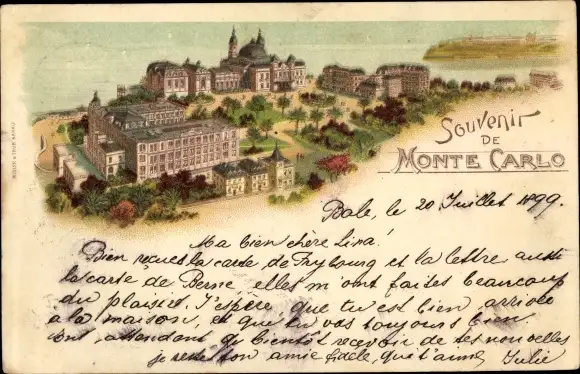 Souvenir
DE
MONTE CARLO
Bale, le 20 Juillet 1899.
Ma bien chère Lina!
Bien reçues la carte de Frybourg et la lettre aussi
la carte de Berne, elles m'ont faites beaucoup
du plaisir. J'espère que tu est bien arrivée
a la maison, et que tu vas toujours bien
attendant de bientôt recevoir de tes nouvelles
je reste ton amie fidele, qui t'aime, Julie